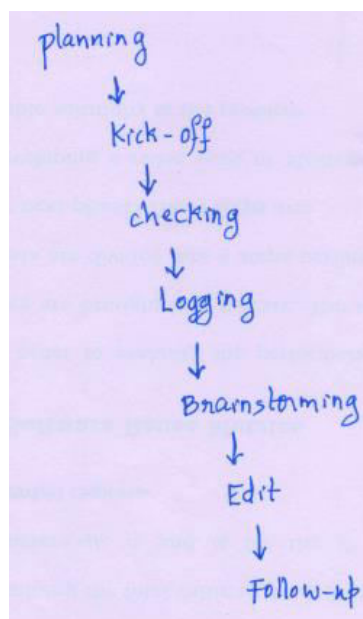 planning
Kick-off
checking
Logging
Brainstorming
Edit
Follow-up